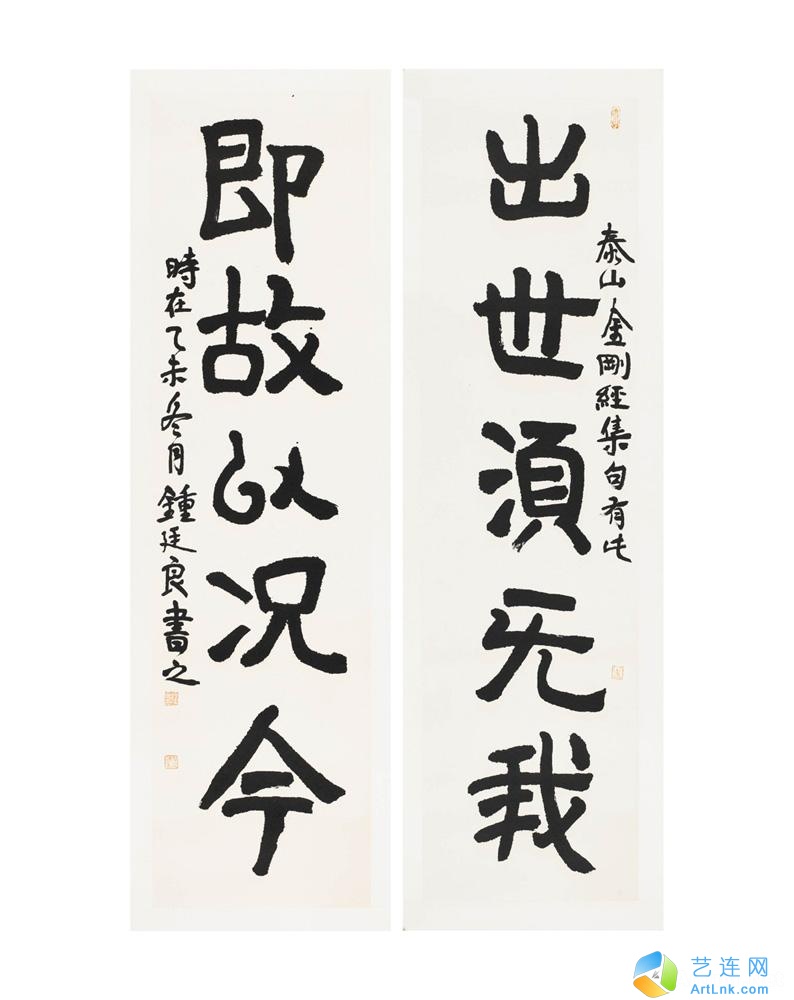 出世須无我
泰山金剛經集句有此
即故以况今
時在乙未冬月鍾廷良書之
艺连网
ArtLnk.com